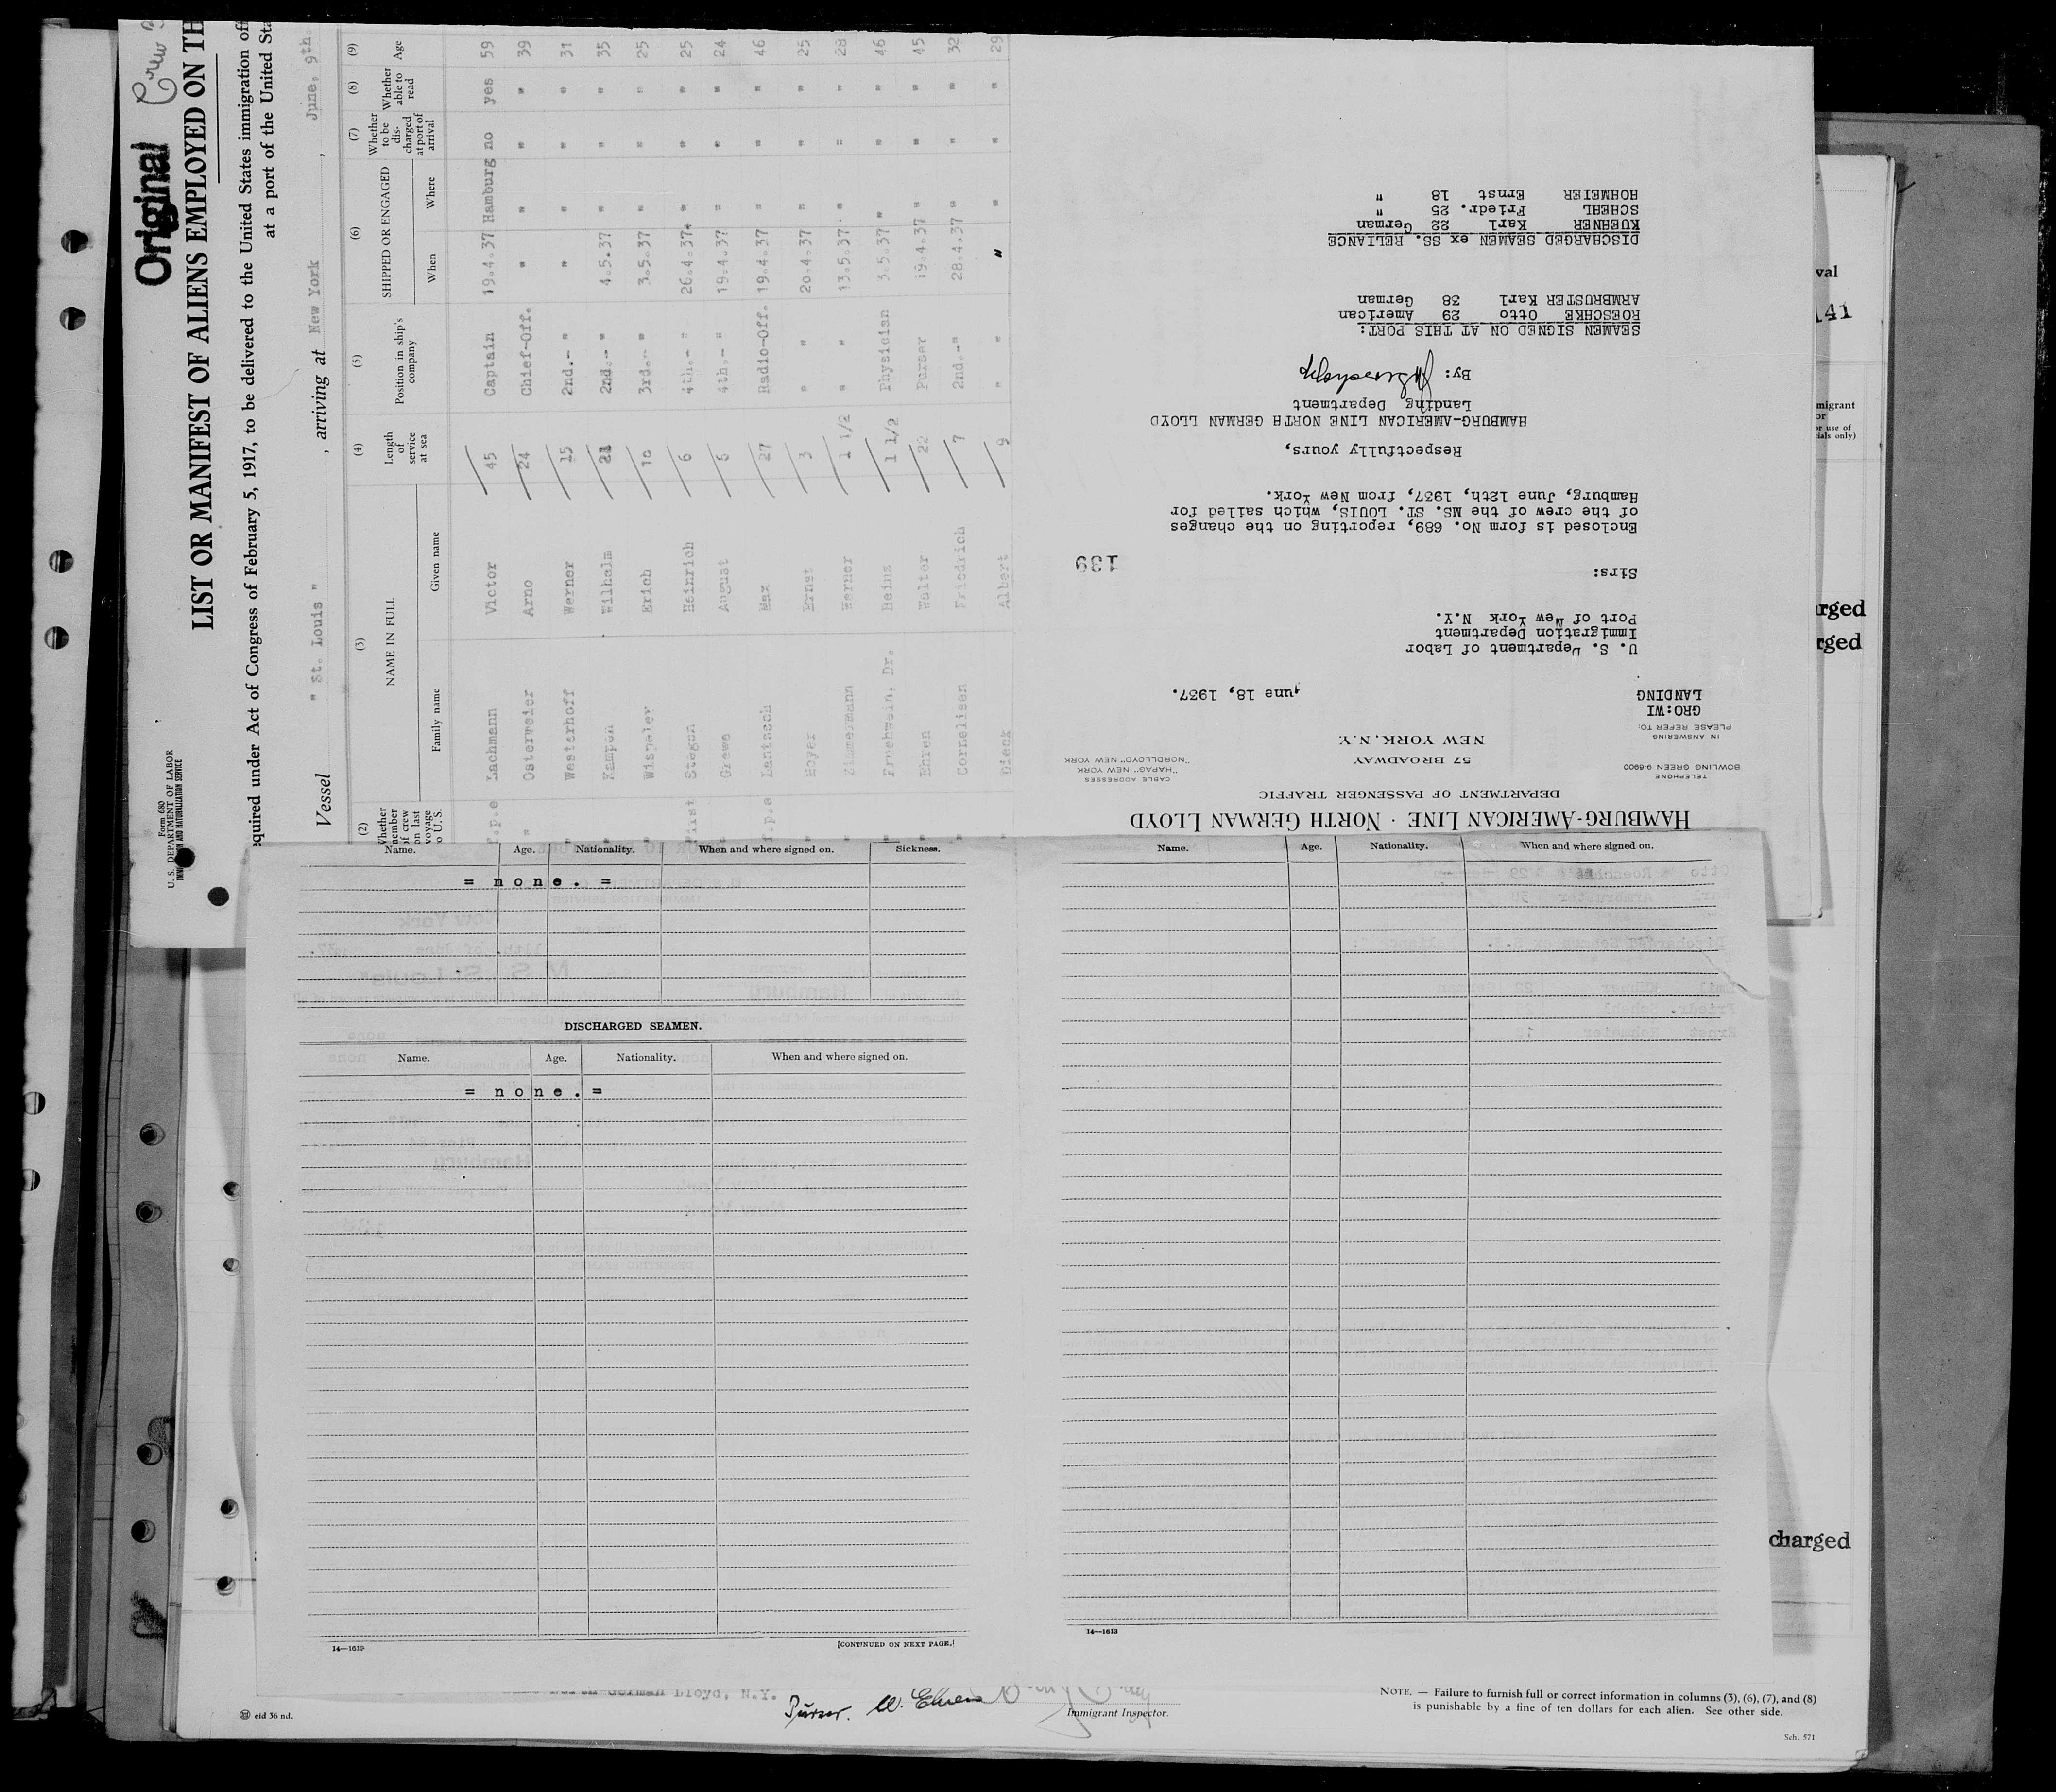 Original
LIST OR MANIFEST OF ALIENS EMPLOYED ON TH
Form 680
U. S. DEPARTMENT OF LABOR
IMMIGRATION AND NATURALIZATION SERVICE
equired under Act of Congress of February 5, 1917, to be delivered to the United States immigration off
at a port of the United Sta
Vessel " St. Louis " , arriving at New York , June, 9th.
(2) (3) (4) (5) (6) (7) (8) (9)
Whether member of crew on last voyage to U. S. NAME IN FULL Length of service at sea Position in ship's company SHIPPED OR ENGAGED Whether to be discharged at port of arrival Whether able to read Age
Family name Given name When Where
Lachmann Victor 45 Captain 19.4.37 Hamburg no yes 59
" Ostermeier Arno 24 Chief-Off. " " " " 39
" Westerhoff Werner 15 2nd.- " " " " " 31
" Kampen Wilhelm 21 2nd.- " 4.5.37 " " " 35
" Wispeler Erich 10 3rd.- " 3.5.37 " " " 25
First Stegen Heinrich 6 4th.- " 26.4.37 " " " 25
" Grewe August 6 4th.- " 19.4.37 " " " 24
Lantzsch Max 27 Radio-Off. 19.4.37 " " " 46
" Meyer Ernst 3 " " 20.4.37 " " " 25
" Zimmermann Werner 1 1/2 " " 13.5.37 " " " 28
" Fruehwein, Dr. Heinz 1 1/2 Physician 3.5.37 " " " 46
" Ehren Walter 22 Purser 19.4.37 " " " 45
" Cornelisen Friedrich 7 2nd.-" 28.4.37 " " " 32
Dieck Albert 9 " " " " " " 29
HAMBURG-AMERICAN LINE · NORTH GERMAN LLOYD
DEPARTMENT OF PASSENGER TRAFFIC
57 BROADWAY
NEW YORK, N.Y.
TELEPHONE
BOWLING GREEN 9-6900
CABLE ADDRESSES
"HAPAG" NEW YORK
"NORDLLOYD" NEW YORK
IN ANSWERING
PLEASE REFER TO:
GRO:WI
LANDING
June 18, 1937.
U. S. Department of Labor
Immigration Department
Port of New York N.Y.
Sirs:
139
Enclosed is form No. 689, reporting on the changes
of the crew of the MS. ST. LOUIS, which sailed for
Hamburg, June 12th, 1937, from New York.
Respectfully yours,
HAMBURG-AMERICAN LINE NORTH GERMAN LLOYD
Landing Department
By:
SEAMEN SIGNED ON AT THIS PORT:
ROESCHKE Otto 29 American
ARMBRUSTER Karl 38 German
DISCHARGED SEAMEN ex SS. RELIANCE
KUEHNER Karl 22 German
SCHEHL Friedr. 25 "
HOHMEIER Ernst 18 "
Name. Age. Nationality. When and where signed on. Sickness.
= none. =
DISCHARGED SEAMEN.
Name. Age. Nationality. When and where signed on.
= none. =
14—1613
[CONTINUED ON NEXT PAGE.]
Name. Age. Nationality. When and where signed on.
14—1613
val
141
migrant
or
or use of
ials only)
rged
rged
charged
North German Lloyd, N.Y.
Purser. W. Ehren
Immigrant Inspector.
NOTE. — Failure to furnish full or correct information in columns (3), (6), (7), and (8)
is punishable by a fine of ten dollars for each alien. See other side.
eid 36 nd.
Sch. 571